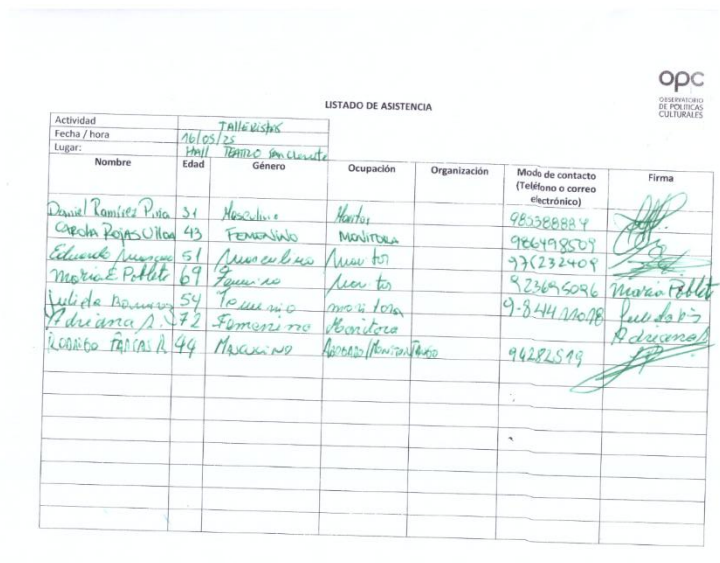 opc
OBSERVATORIO
DE POLITICAS
CULTURALES
LISTADO DE ASISTENCIA
Actividad Talleristas
Fecha / hora 16/05/25
Lugar: Hall Teatro San Clemente
Nombre Edad Género Ocupación Organización Modo de contacto (Teléfono o correo electrónico) Firma
Daniel Ramírez 31 Masculino Monitor 985388884
Carola Rojas Ulloa 43 Femenino Monitora 986498509
Eduardo 51 Masculino Monitor 976232409
Maria E Poblete 69 Femenino Monitor 923695096 Maria Poblete
54 Femenino monitora
Adriana A. 72 Femenino Monitora Adriana
Rodrigo 44 Masculino Abogado/Monitor Tango 94282519